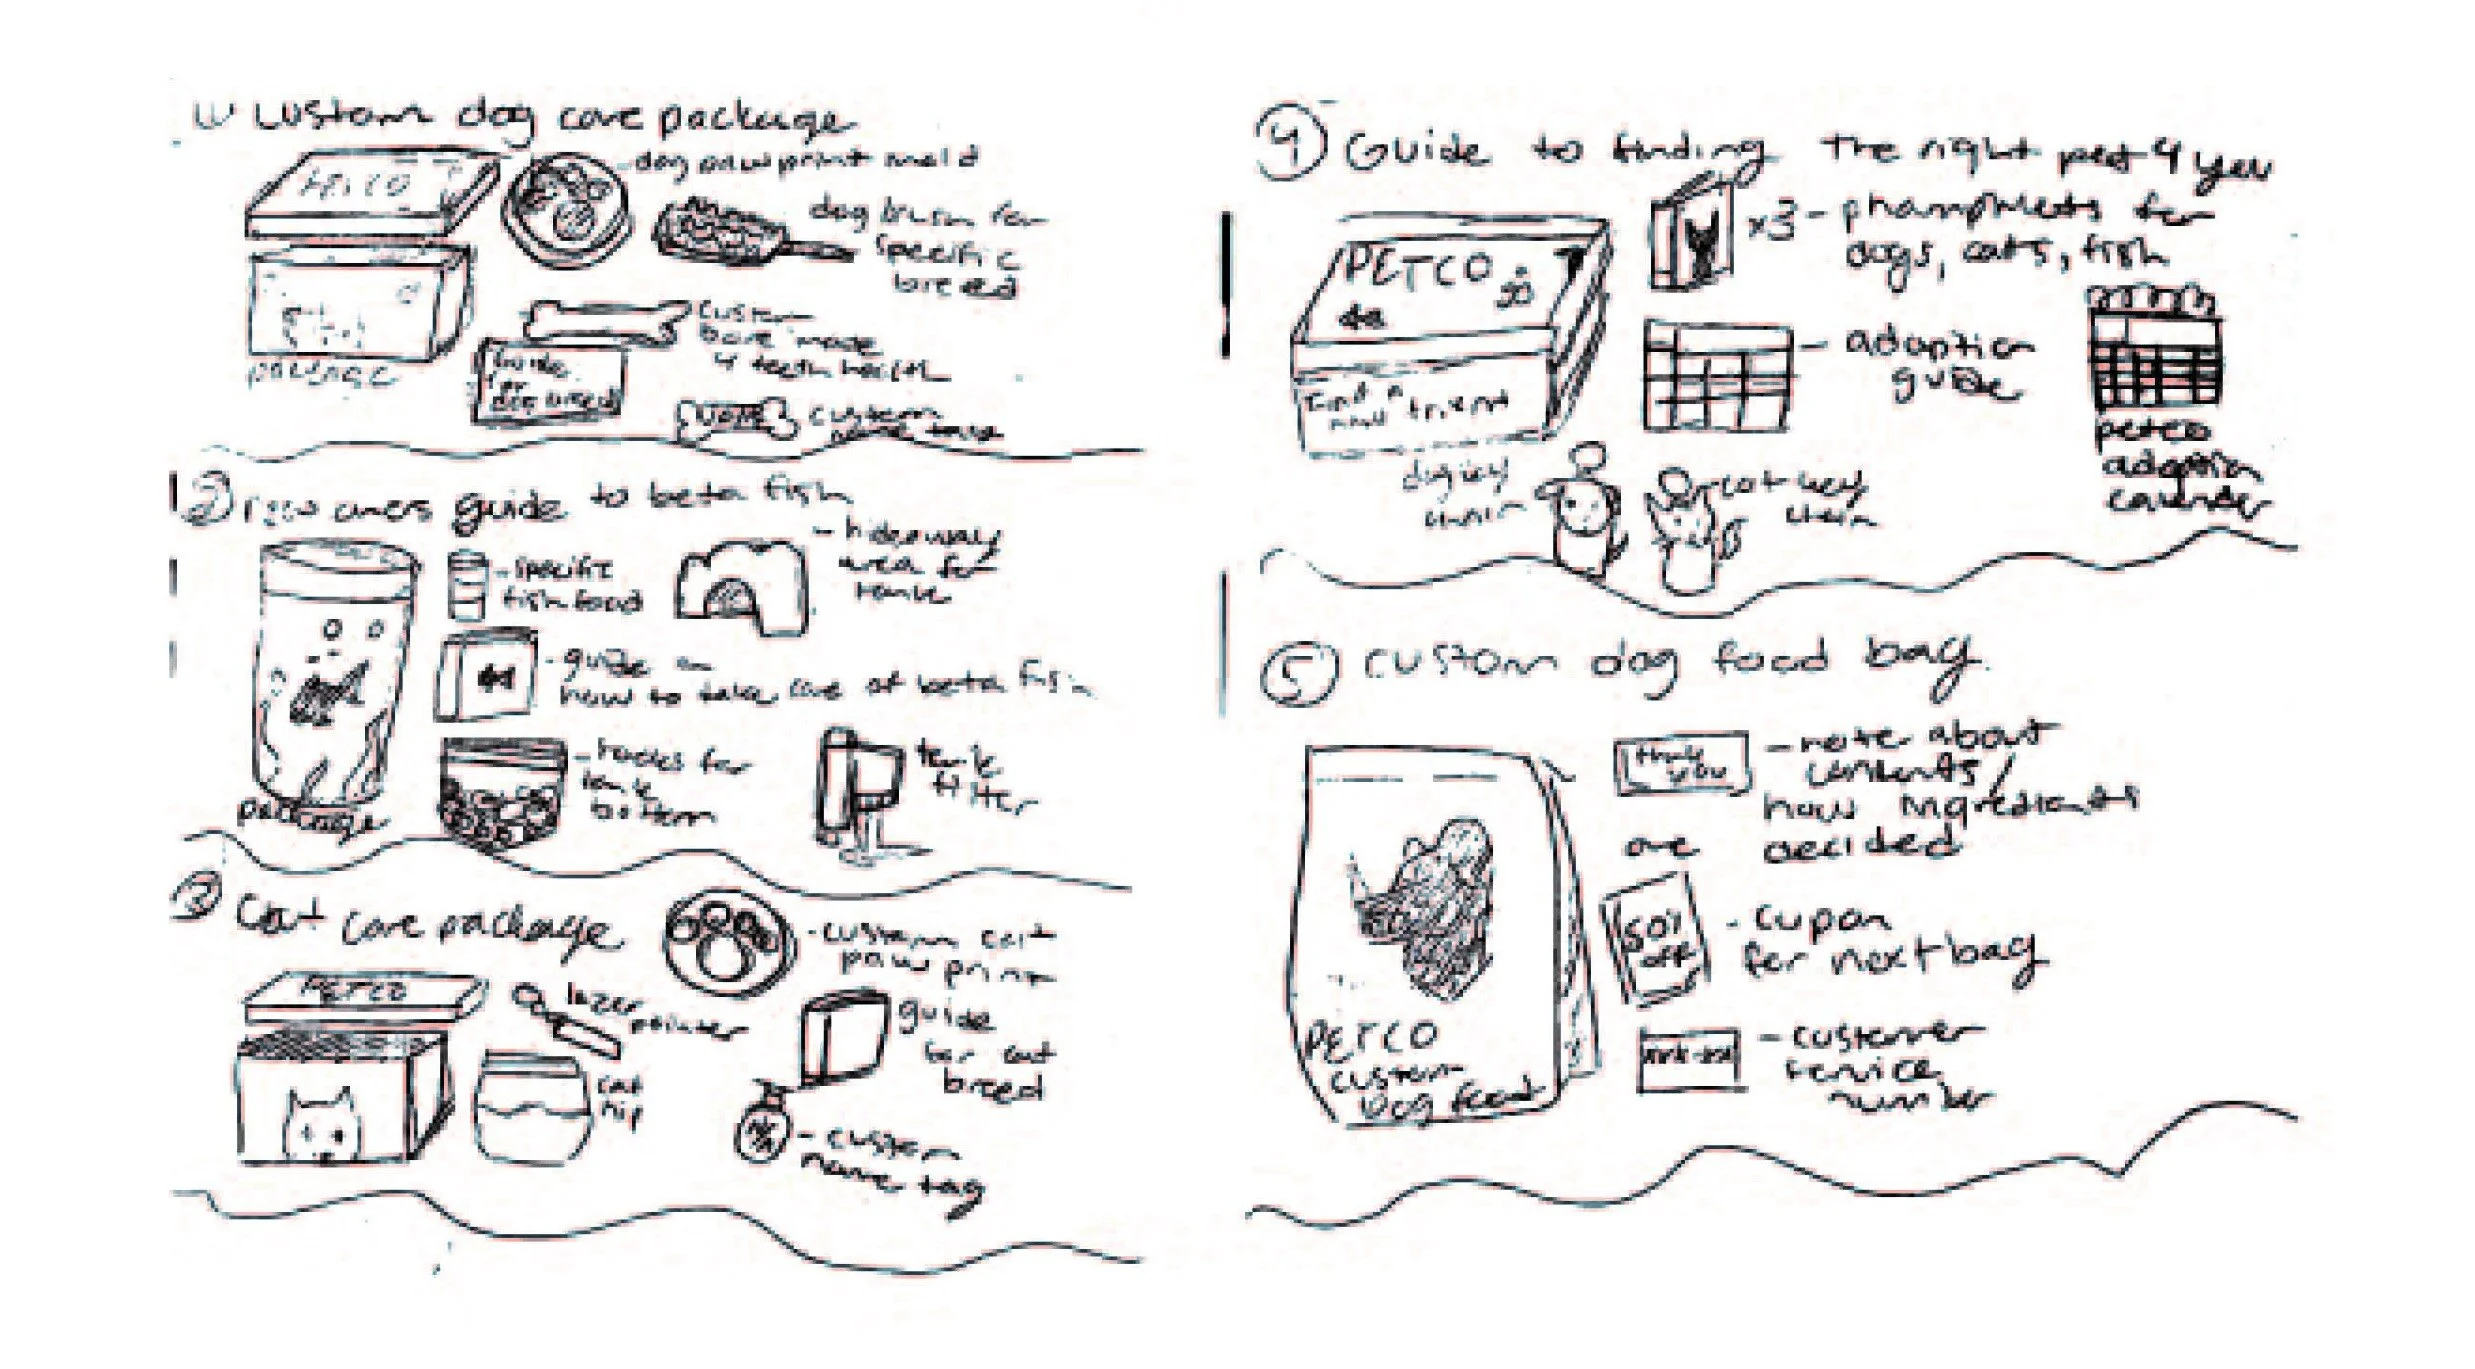 Custom dog care package
PETCO
dog paw print mold
dog brush for
specific
breed
custom
bone made
4 teeth health
package
guide
for
dog breed
custom
2 new owners guide to beta fish
- specific
fish food
- hideaway
area for
tank
- guide on
how to take care of beta fish
- rocks for
tank
bottom
tank
filter
package
3 Cat care package
- custom cat
paw print
PETCO
lazer
pointer
cat
nip
guide
for cat
breed
- custom
name tag
4 Guide to finding the right pet 4 you
x3 - phamphlets for
dogs, cats, fish
PETCO
find a
new friend
- adoption
guide
petco
adoption
calender
dog key
chain
cat key
chain
5 custom dog food bag.
thank
you
- note about
contents/
how ingredients
are decided
50%
off
- cupon
for next bag
PETCO
custom
Dog food
- customer
service
number